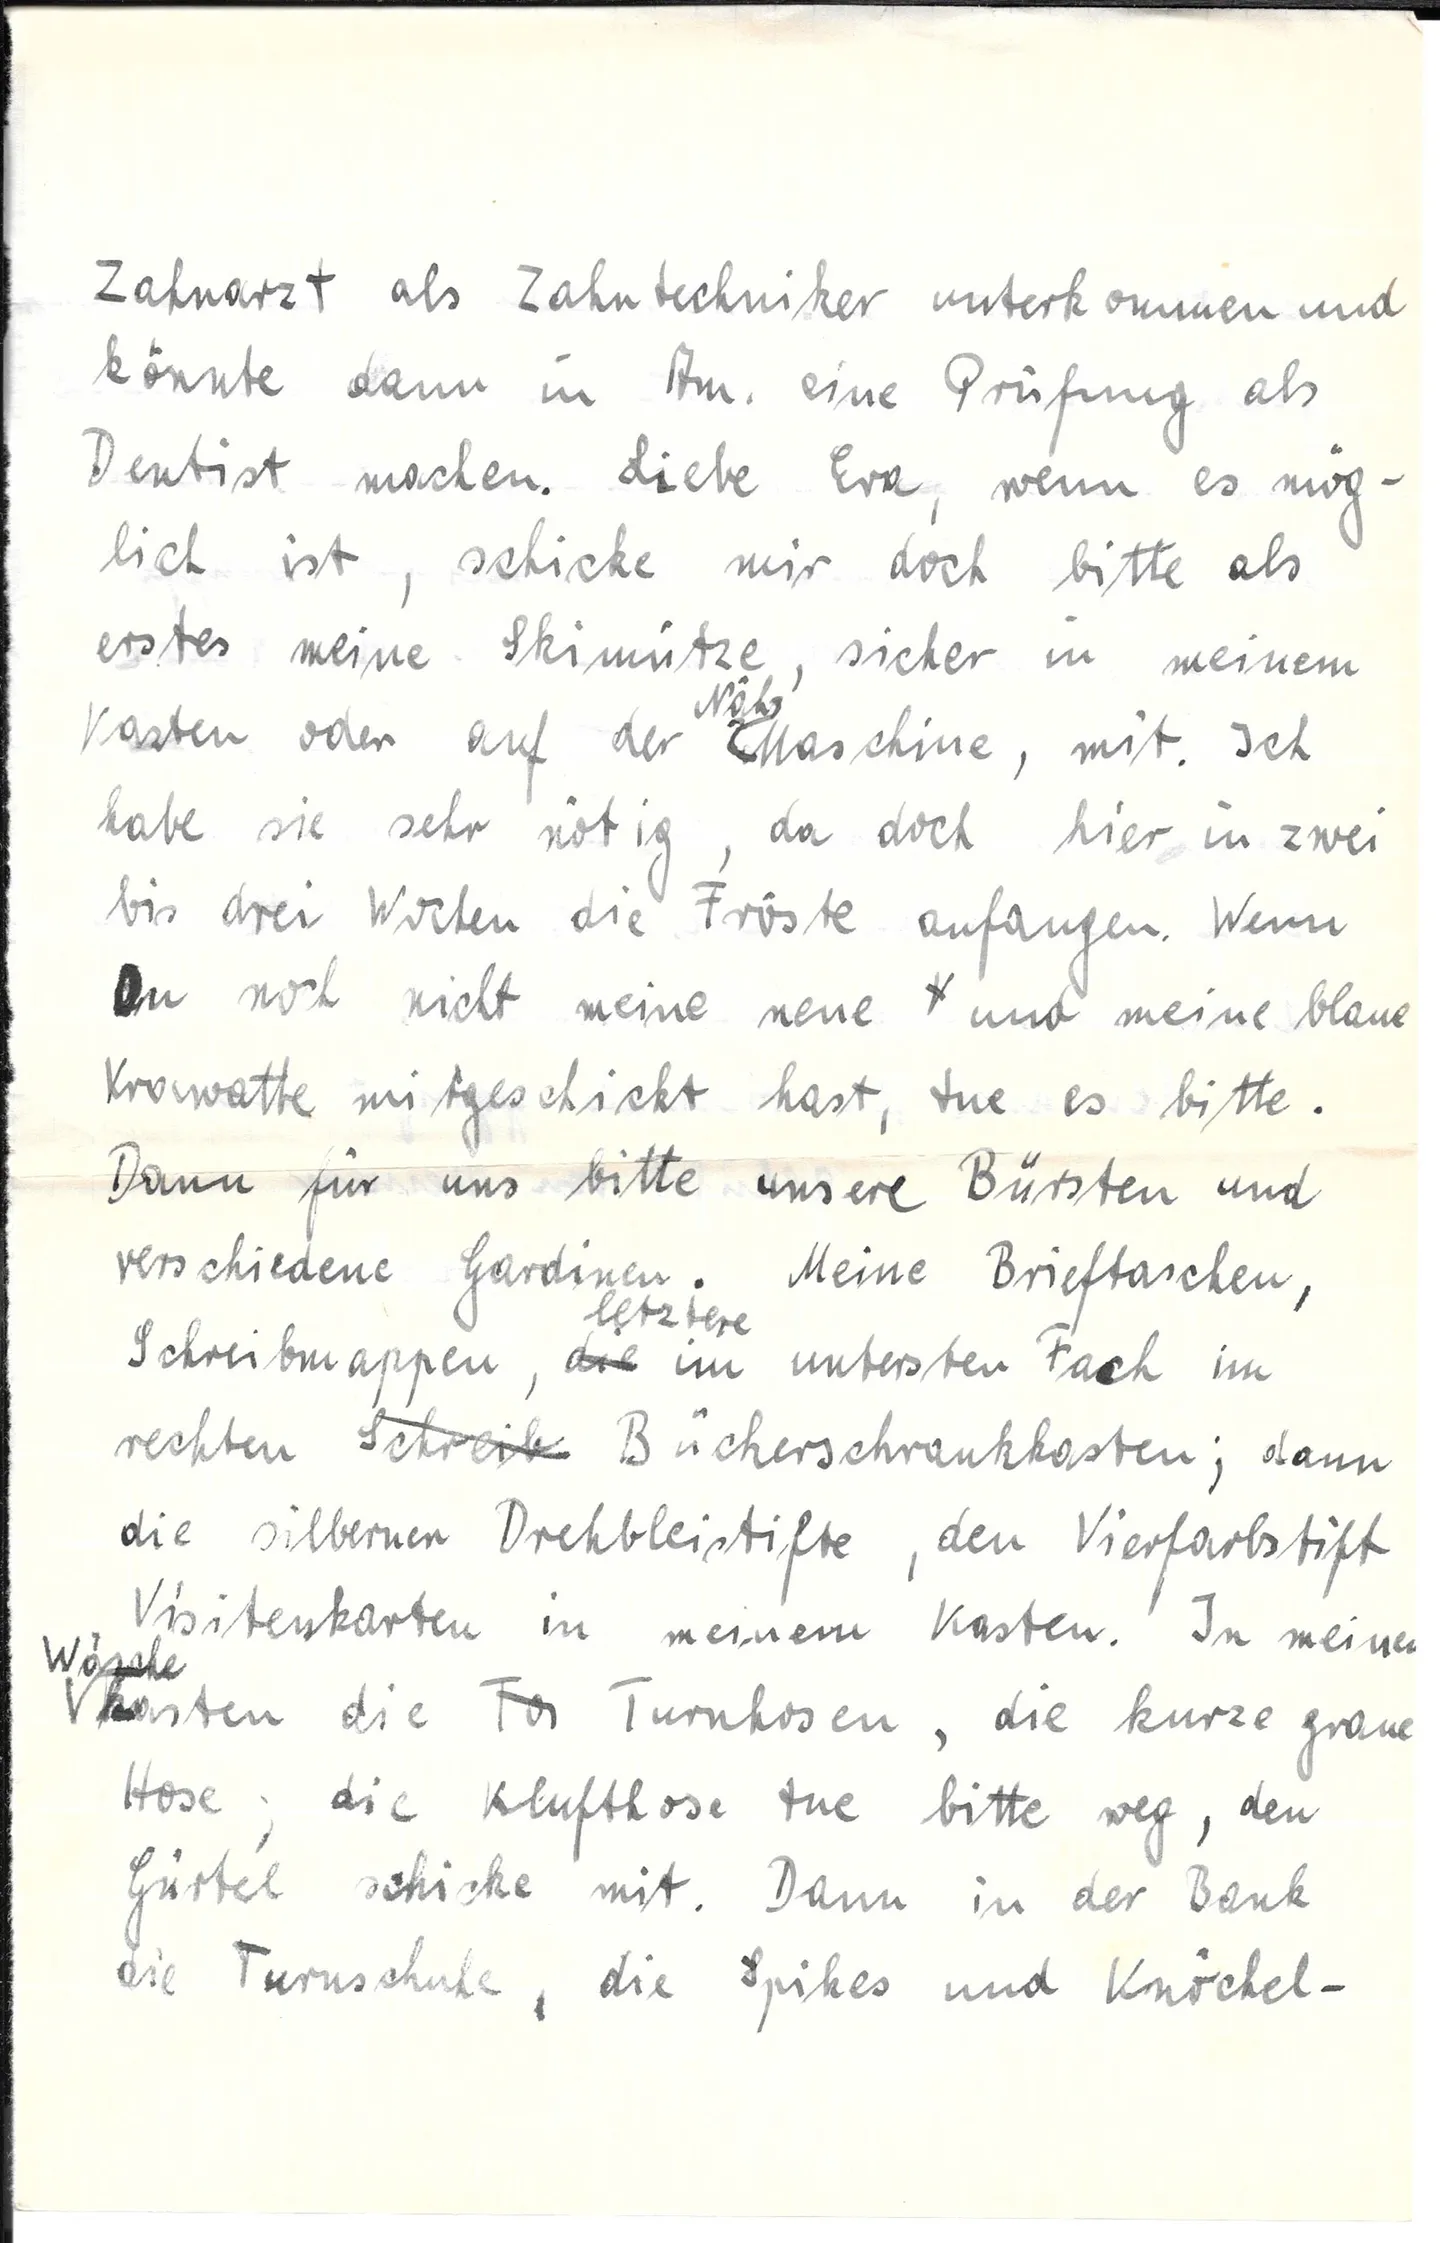 Zahnarzt als Zahntechniker unterkommen und
könnte dann in Am. eine Prüfung als
Dentist machen. Liebe Eva, wenn es mög-
lich ist, schicke mir doch bitte als
erstes meine Skimütze, sicher in meinem
Näh
Kasten oder auf der Maschine, mit. Ich
habe sie sehr nötig, da doch hier in zwei
bis drei Wochen die Fröste anfangen. Wenn
Du noch nicht meine neue * und meine blaue
Krawatte mitgeschickt hast, tue es bitte.
Dann für uns bitte unsere Bürsten und
verschiedene Gardinen. Meine Brieftaschen,
letztere
Schreibmappen, die im untersten Fach im
rechten Schreib Bücherschrankkasten; dann
die silbernen Drehbleistifte, den Vierfarbstift
Visitenkarten in meinem Kasten. In meinen
Wäsche
kasten die Tos Turnhosen, die kurze graue
Hose; die Klufthose tue bitte weg, den
Gürtel schicke mit. Dann in der Bank
die Turnschuhe, die Spikes und Knöchel-